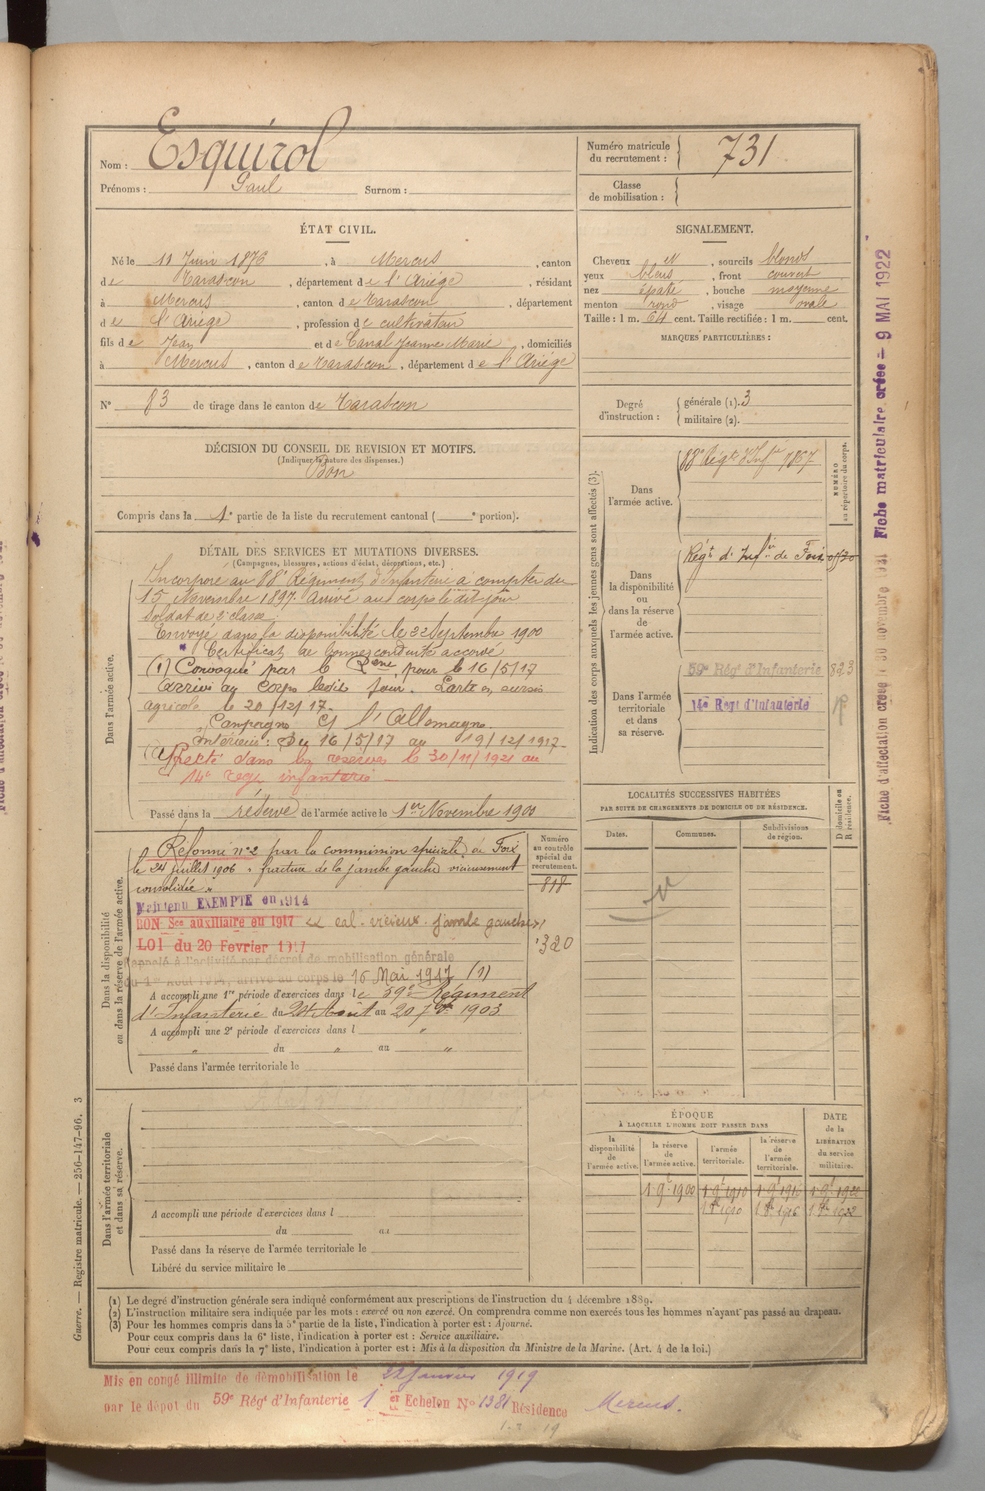 Nom : Esquirol
Prénoms : Paul Surnom :
Numéro matricule du recrutement : 731
Classe de mobilisation :
ÉTAT CIVIL.
Né le 11 Juin 1876, à Mercus, canton
de Tarascon, département de l'Ariége, résidant
à Mercus, canton de Tarascon, département
de l'Ariége, profession de cultivateur
fils de Jean et de Canal Jeanne Marie, domiciliés
à Mercus, canton de Tarascon, département de l'Ariége
N° 83 de tirage dans le canton de Tarascon
DÉCISION DU CONSEIL DE REVISION ET MOTIFS.
(Indiquer la nature des dispenses.)
Bon
Compris dans la 1e partie de la liste du recrutement cantonal ( e portion).
SIGNALEMENT.
Cheveux et, sourcils blonds
yeux bleus, front couvert
nez épaté, bouche moyenne
menton rond, visage ovale
Taille : 1 m. 64 cent. Taille rectifiée : 1 m. cent.
MARQUES PARTICULIÈRES :
Degré d'instruction : générale (1). 3
militaire (2).
DÉTAIL DES SERVICES ET MUTATIONS DIVERSES.
(Campagnes, blessures, actions d'éclat, décorations, etc.)
Dans l'armée active.
Incorporé au 88e Régiment d'Infanterie à compter du
15 Novembre 1897. Arrivé au corps le dit jour
Soldat de 2e classe
Envoyé dans la disponibilité le 22 Septembre 1900
Certificat de bonne conduite accordé
(1) Convoqué par le pour le 16/5/17
Arrivé au Corps ledit jour. en sursis
agricole le 20/12/17.
Campagne C/ l'Allemagne
Intérieur : Du 16/5/17 au 19/12/1917
Affecté dans la réserve le 30/11/1921 au
14e regt infanterie
Passé dans la réserve de l'armée active le 1er Novembre 1900
Indication des corps auxquels les jeunes gens sont affectés (3).
NUMÉRO au répertoire du corps.
Dans l'armée active.
88e Régt d'Infie 7867
Dans la disponibilité ou dans la réserve de l'armée active.
Régt d'Infie de Foix
Dans l'armée territoriale et dans sa réserve.
59e Régt d'Infanterie 823
14e Regt d'Infanterie
Dans la disponibilité ou dans la réserve de l'armée active.
Numéro au contrôle spécial du recrutement.
Réformé n°2 par la commission spéciale de Foix
le 24 juillet 1906 « fracture de la jambe gauche vicieusement
consolidée »
818
Maintenu EXEMPTE en 1914
BON Sce auxiliaire en 1917 « cal. vicieux jambe gauche »
LOI du 20 Fevrier 1917
320
Rappelé à l'activité par décret de mobilisation générale
du 1er Août 1914, arrivé au corps le 16 Mai 1917 (1)
A accompli une 1re période d'exercices dans le 59e Régiment
d'Infanterie du 24 Août au 20 7bre 1903
A accompli une 2e période d'exercices dans l "
" du " au "
Passé dans l'armée territoriale le
LOCALITÉS SUCCESSIVES HABITÉES
PAR SUITE DE CHANGEMENTS DE DOMICILE OU DE RÉSIDENCE.
Dates. Communes. Subdivisions de région. D domicile ou R résidence.
Dans l'armée territoriale et dans sa réserve.
A accompli une période d'exercices dans l
du au
Passé dans la réserve de l'armée territoriale le
Libéré du service militaire le
ÉPOQUE
À LAQUELLE L'HOMME DOIT PASSER DANS
DATE de la LIBÉRATION du service militaire.
la disponibilité de l'armée active. la réserve de l'armée active. l'armée territoriale. la réserve de l'armée territoriale.
(1) Le degré d'instruction générale sera indiqué conformément aux prescriptions de l'instruction du 4 décembre 1889.
(2) L'instruction militaire sera indiquée par les mots : exercé ou non exercé. On comprendra comme non exercés tous les hommes n'ayant pas passé au drapeau.
(3) Pour les hommes compris dans la 5e partie de la liste, l'indication à porter est : Ajourné.
Pour ceux compris dans la 6e liste, l'indication à porter est : Service auxiliaire.
Pour ceux compris dans la 7e liste, l'indication à porter est : Mis à la disposition du Ministre de la Marine. (Art. 4 de la loi.)
Mis en congé illimité de démobilisation le 22 Janvier 1919
par le dépôt du 59e Régt d'Infanterie 1er Echelon N° 1381 Résidence Mercus.
Guerre. — Registre matricule. — 256-147-96. 3
Fiche matriculaire créée = 9 MAI 1922
Fiche d'affectation créée 30 novembre 1931